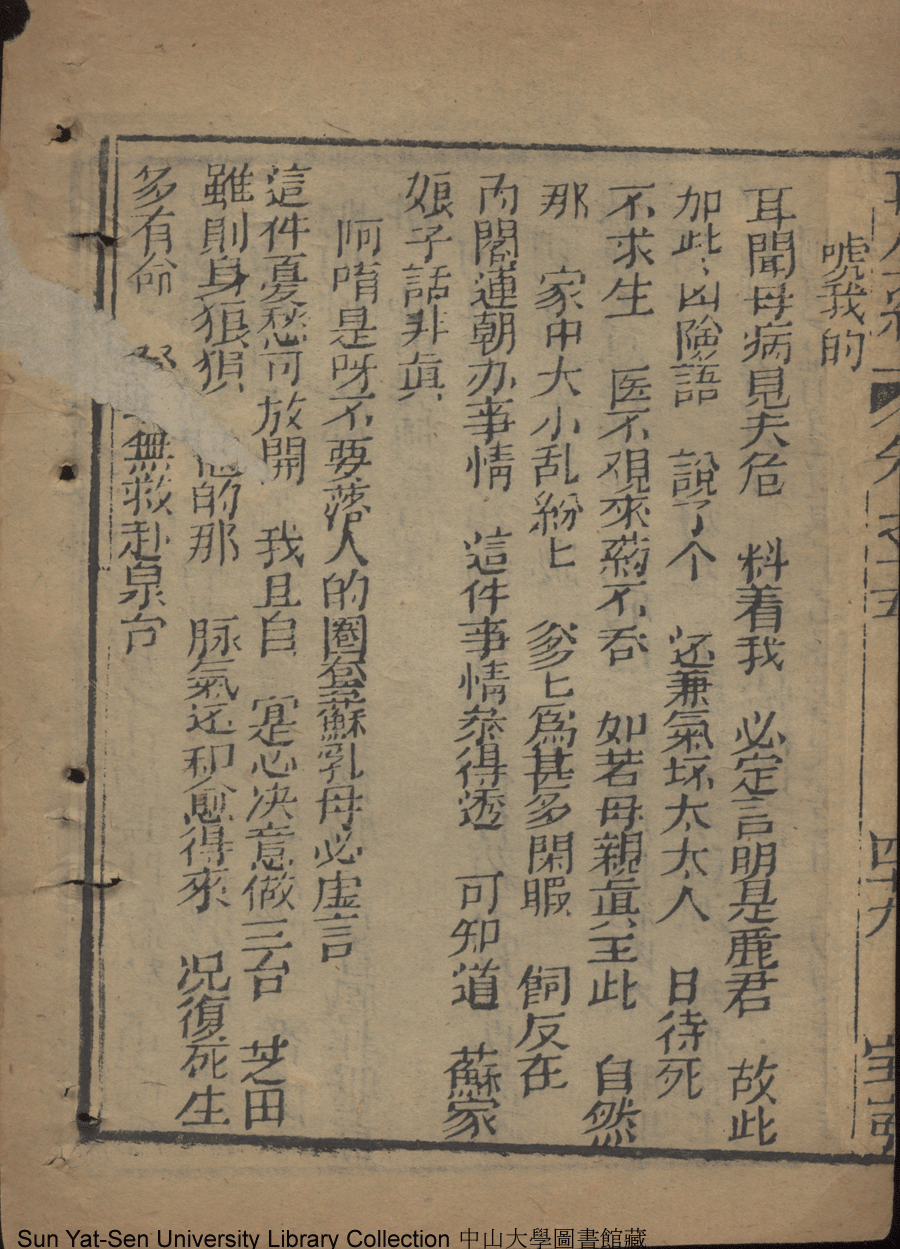 唬我的
耳聞母病見夫危 料着我 必定言明是麗君 故此
加此凶險語 說了个 还兼氣坏太太人 日待死
不求生 医不覌來药不吞 如若母親眞至此 自然
那 家中大小乱紛匕 爹匕爲甚多閑暇 飼反在
內閣連朝办事情 這件事情叅得透 可知道 蘇家
娘子話非眞
阿唷是呀不要落人的圈套蘇乳母必虛言
這件憂愁可放開 我且自 寔心决意做三台 芝田
雖則身狼狽 的那 脉氣还和愈得來 况復死生
多有命 無救赴泉台
四十九
Sun Yat-Sen University Library Collection 中山大學圖書館藏